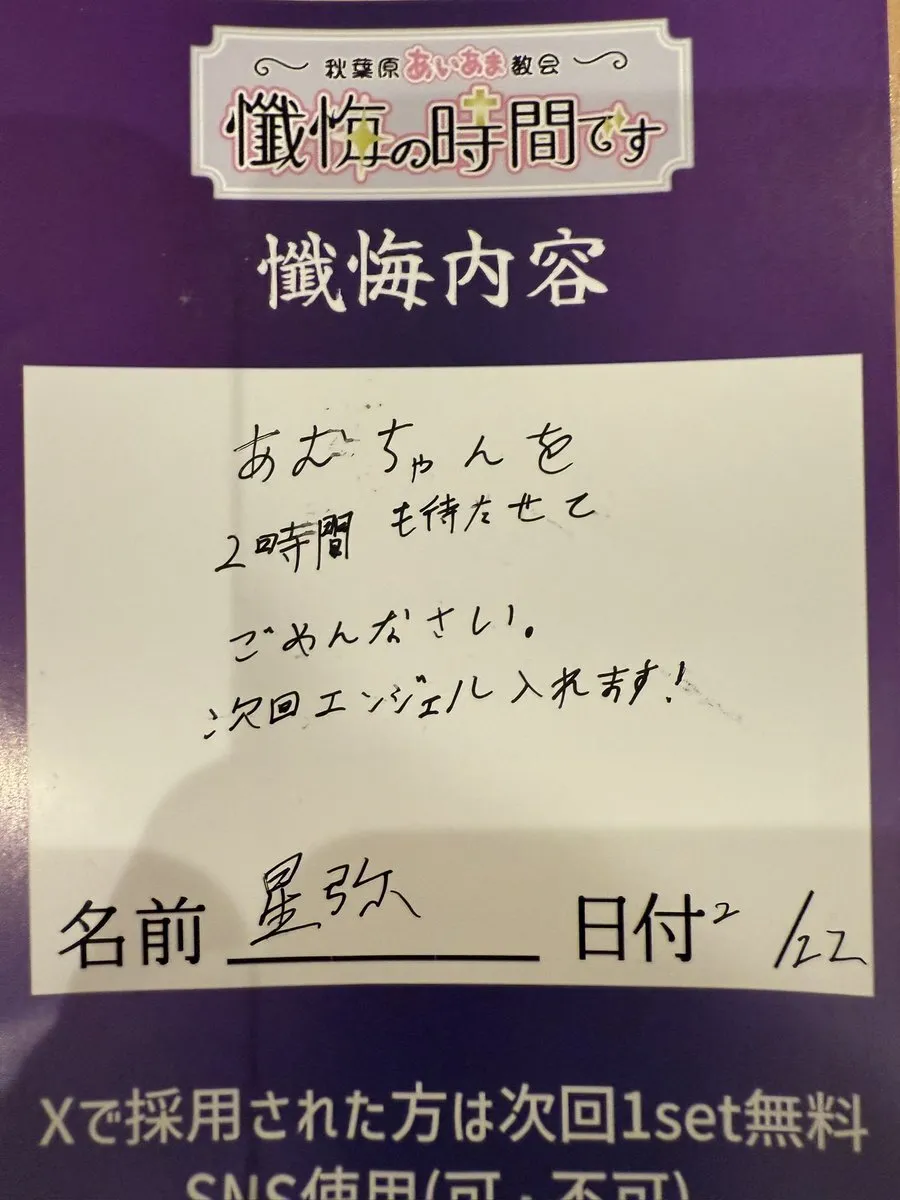 秋葉原あいあま教会
懺悔の時間です
懺悔内容
あむちゃんを
2時間も待たせて
ごめんなさい。
次回エンジェル入れます!
名前 星弥 日付 2/22
Xで採用された方は次回1set無料
SNS使用(可・不可)